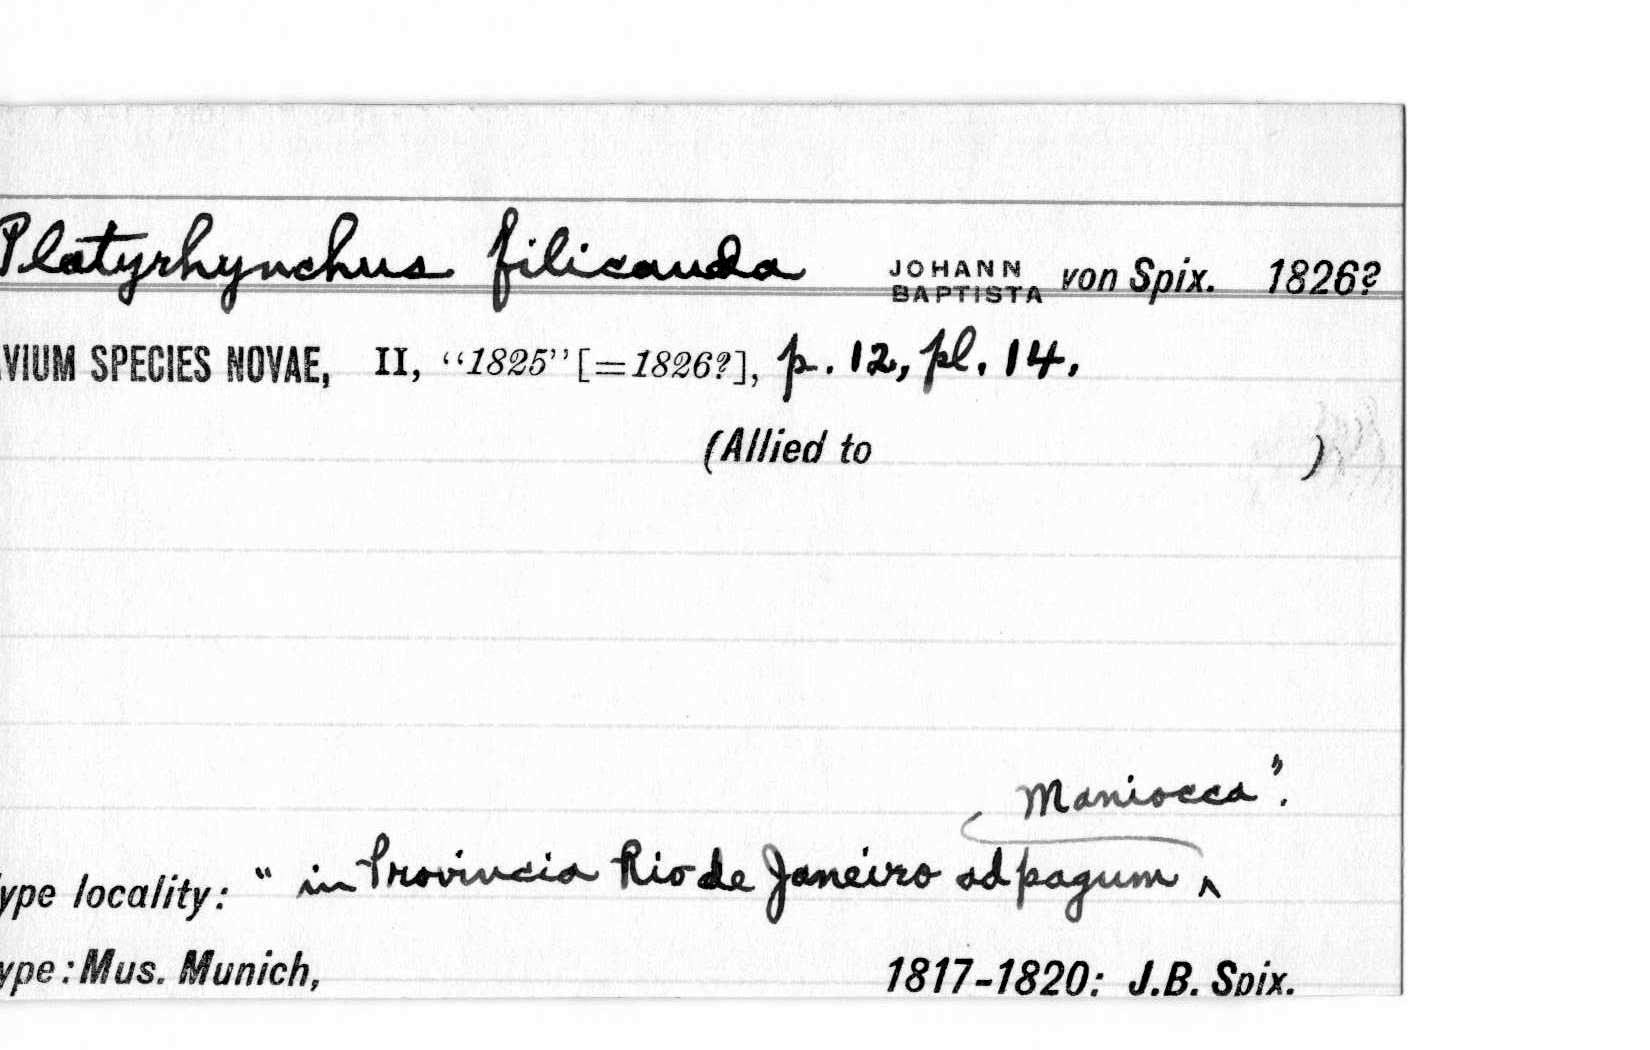 Platyrhynchus filicauda JOHANN BAPTISTA von Spix. 1826?
VIUM SPECIES NOVAE, II, "1825" [=1826?], p. 12, pl. 14.
(Allied to )
Maniocca".
ype locality: "in Provincia Rio de Janeiro ad pagum ^
ype: Mus. Munich, 1817-1820: J.B. Spix.